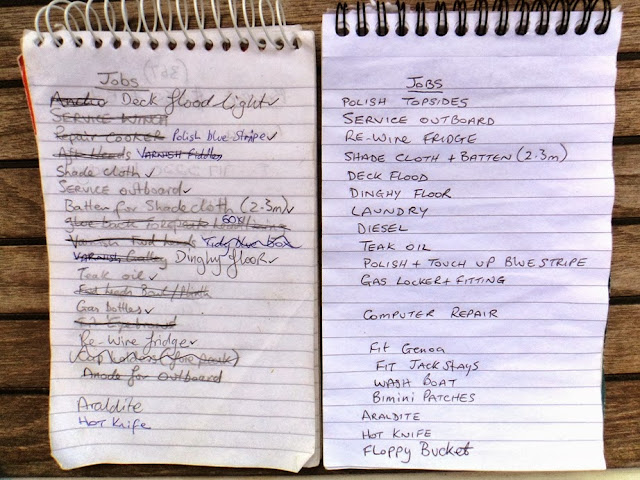 Jobs
Audio Deck flood light ✓
SERVICE WINCH
Repair COOKER Polish blue stripe ✓
Aft Heads VARNISH Fiddles
Shade cloth ✓
SERVICE outboard ✓
Batten for Shade cloth (2.3m) ✓
glue back forepeak headlining
Varnish Fwd heads Tidy blue box
VARNISH Galley Dinghy floor ✓
Teak oil ✓
Fwd heads Bowl/
Gas bottles ✓
Re-Wire fridge ✓
Cap (fore peak)
Anode for outboard
Araldite
HOT Knife
JOBS
POLISH TOPSIDES
SERVICE OUTBOARD
RE-WIRE FRIDGE
SHADE CLOTH + BATTEN (2.3m)
DECK FLOOD
DINGHY FLOOR
LAUNDRY
DIESEL
TEAK OIL
POLISH + TOUCH UP BLUE STRIPE
GAS LOCKER + FITTING
COMPUTER REPAIR
Fit Genoa
FIT JACKSTAYS
WASH BOAT
Bimini PATCHES
ARALDITE
HOT KNIFE
FLOPPY BUCKET